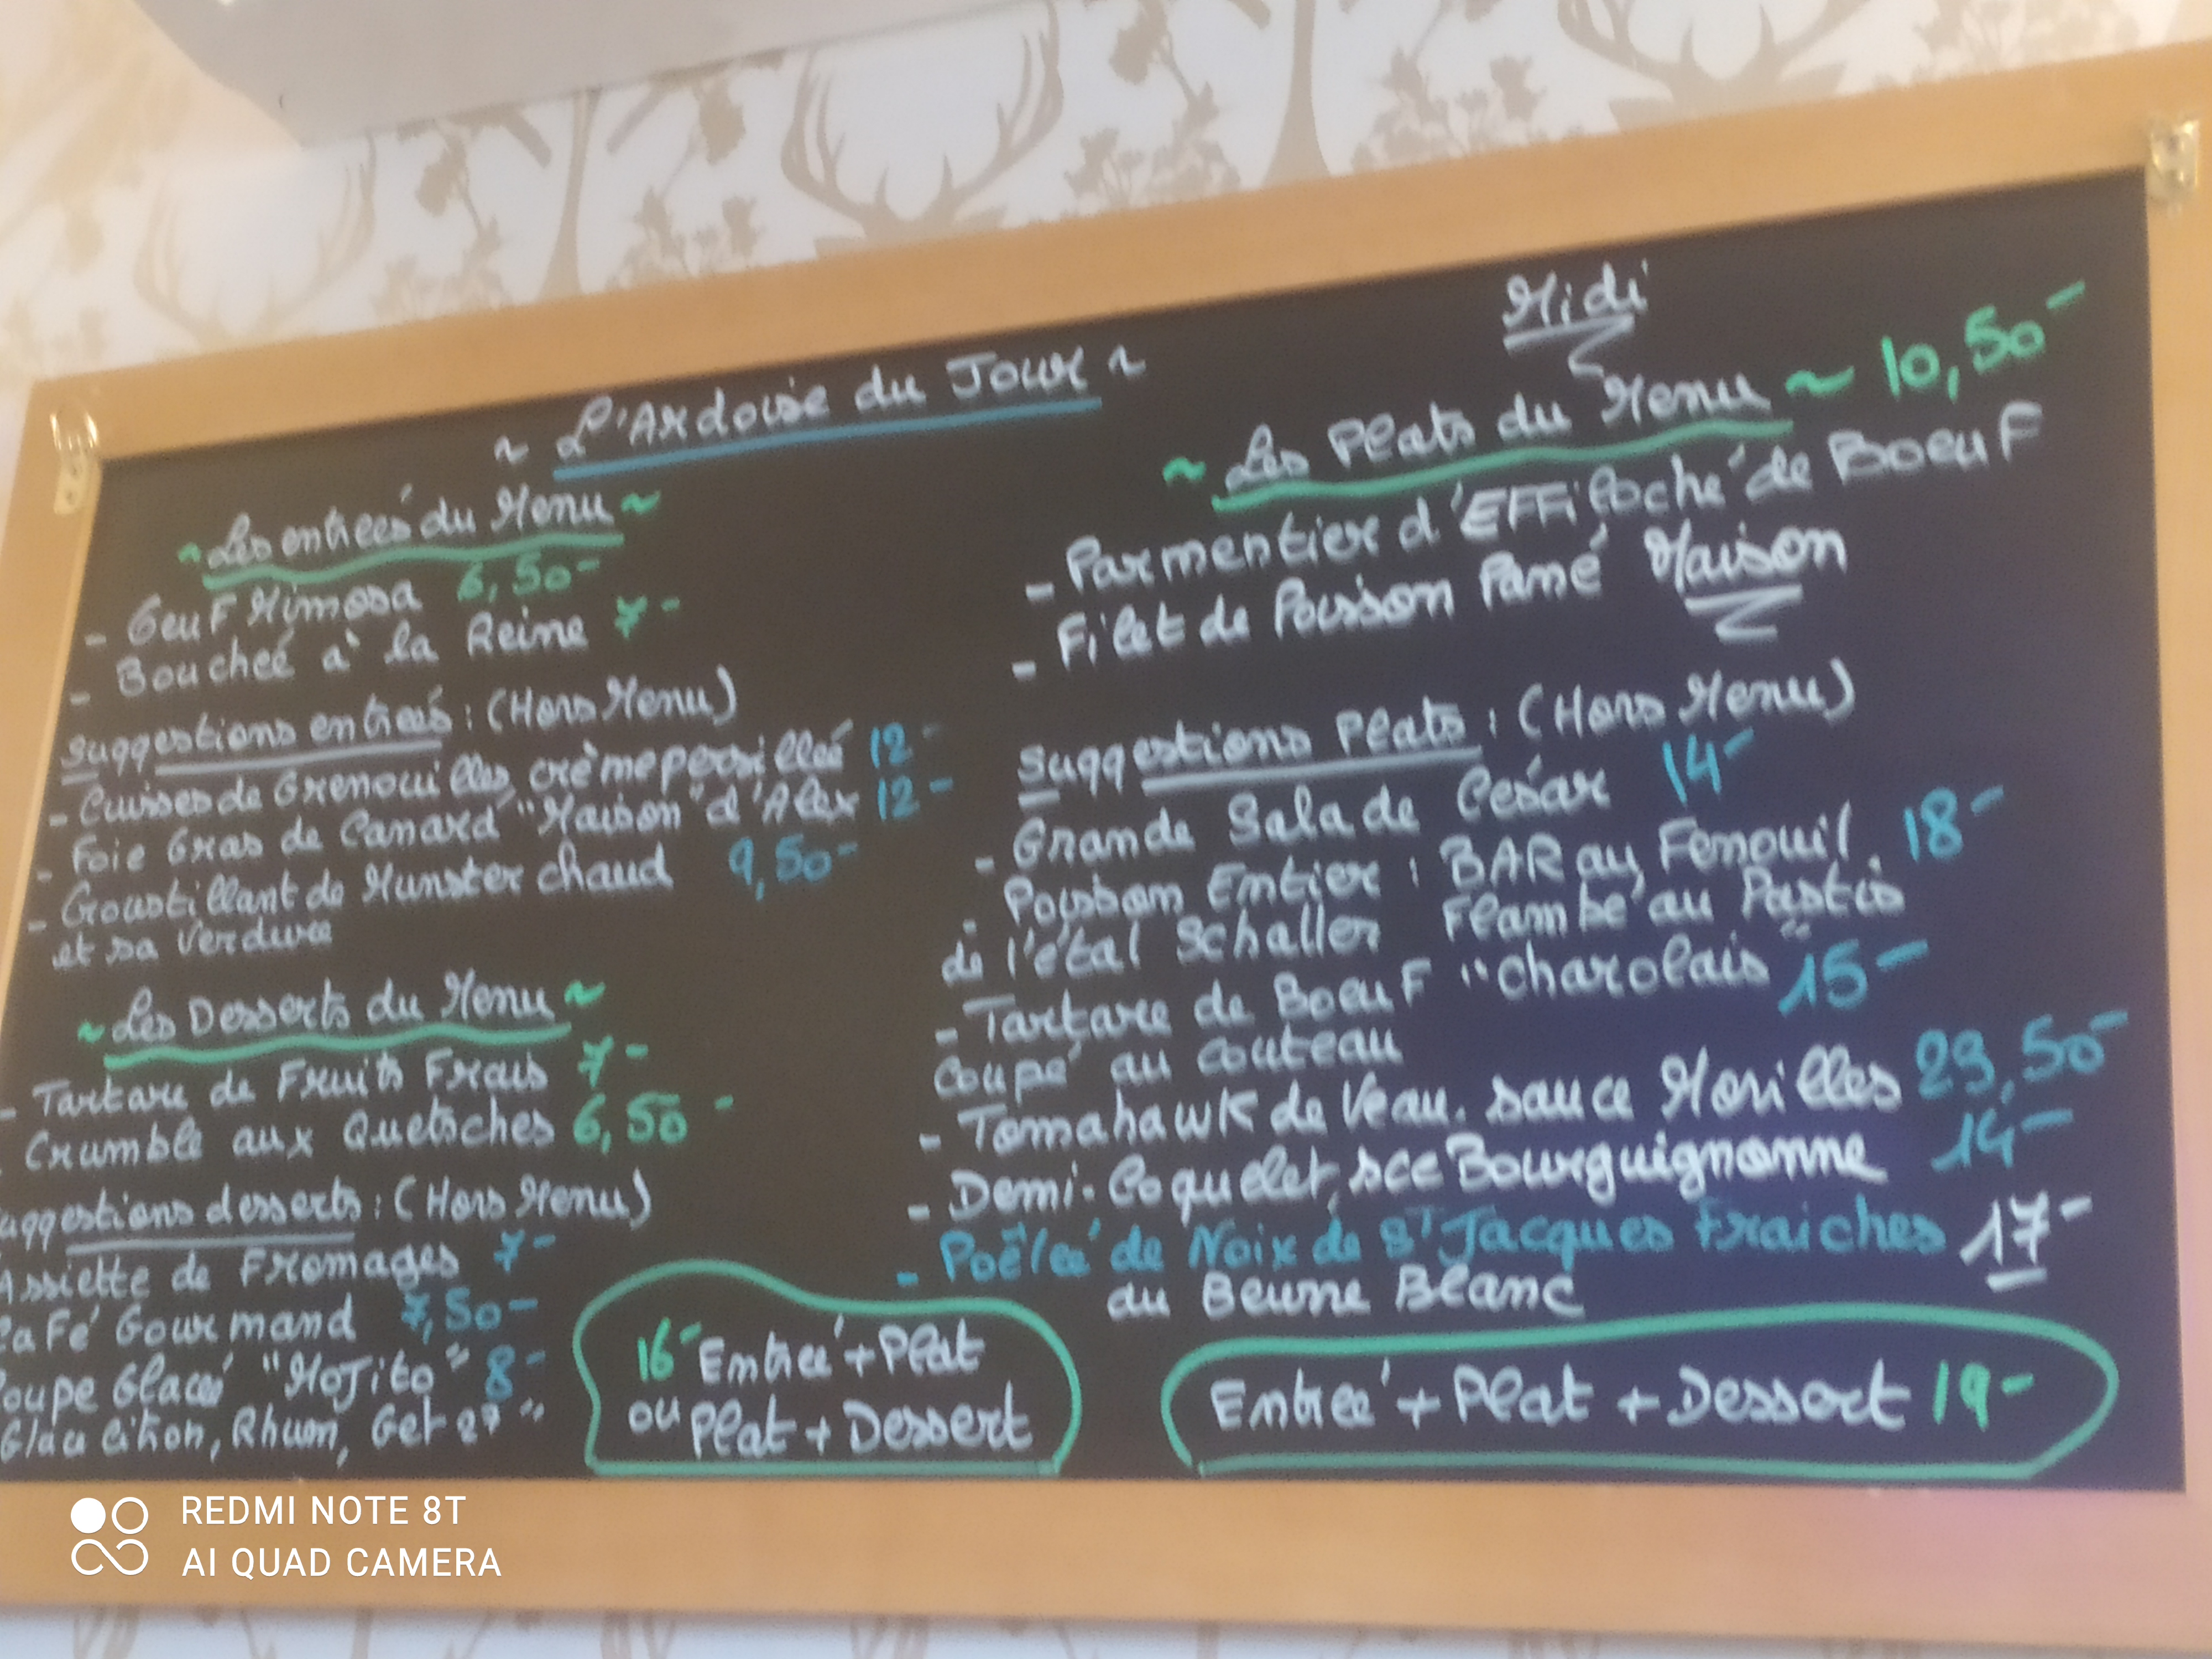 ~ L'Ardoise du Jour ~
~ Les entrées du Menu ~
- Oeuf Mimosa 6,50-
- Bouchée à la Reine 7-
Suggestions entrées : (Hors Menu)
- Cuisses de Grenouilles, crème persillée 12-
- Foie Gras de Canard "Maison" d'Alex 12-
- Croustillant de Munster chaud 9,50-
et sa Verdure
~ Les Desserts du Menu ~
- Tartare de Fruits Frais 7-
- Crumble aux Quetsches 6,50-
uggestions desserts : (Hors Menu)
Assiette de Fromages 7-
Café Gourmand 7,50-
oupe Glacée "Mojito" 8-
Glace Citron, Rhum, Get 27"
16- Entrée + Plat
ou Plat + Dessert
Midi
~ Les Plats du Menu ~ 10,50-
- Parmentier d'Effiloché de Boeuf
- Filet de Poisson Pané Maison
Suggestions Plats : (Hors Menu)
- Grande Salade César 14-
- Poisson Entier : BAR au Fenouil 18-
de l'étal Schaller Flambé au Pastis
- Tartare de Boeuf "Charolais" 15-
Coupé au couteau
- Tomahawk de Veau. sauce Morilles 29,50-
- Demi-Coquelet, sce Bourguignonne 14-
- Poêlée de Noix de St Jacques Fraiches 17-
au Beurre Blanc
Entrée + Plat + Dessert 19-
REDMI NOTE 8T
AI QUAD CAMERA